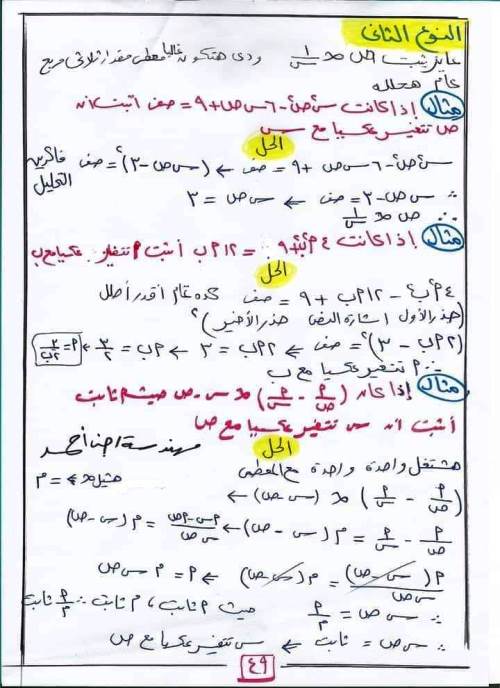 النوع الثانى
عايز يثبت ص ∝ ١/س ودى هتكون غالبا معطى مقدار ثلاثى مربع
كامل هحلله
مثال إذا كانت س²ص² - ٦ س ص + ٩ = صفر اثبت انه
ص تتغير عكسيا مع س
الحل
س²ص² - ٦ س ص + ٩ = صفر ← (س ص - ٣)² = صفر فاكرين
التحليل
∴ س ص - ٣ = صفر ← س ص = ٣
∴ ص ∝ ١/س
مثال إذا كانت ٤ م²ب² + ٩ = ١٢ م ب أثبت م تتغير عكسيا مع ب
الحل
٤ م²ب² - ١٢ م ب + ٩ = صفر كده تمام أقدر أحلل
(جذر الأول إشارة الوسط جذر الأخير)²
(٢ م ب - ٣)² = صفر ← ٢ م ب = ٣ ← م ب = ٣/٢ ← م = ٣/٢ب
∴ م تتغير عكسيا مع ب
مثال إذا كان (م/ص - م/س) ∝ س - ص حيث م ثابت
أثبت ان س تتغير عكسيا مع ص
الحل
مهندسة
هشتغل واحدة واحدة مع المعطى
هشيل ∝ ← = م
(م/ص - م/س) ∝ (س - ص) ←
م/ص - م/س = م (س - ص) ← م س - م ص / س ص = م (س - ص)
م (س - ص) / س ص = م (س - ص) ← م = م س ص
∴ س ص = م/م حيث م ثابت، م ثابت ∴ م/م ثابت
∴ س ص = ثابت ← س تتغير عكسيا مع ص
٤٩